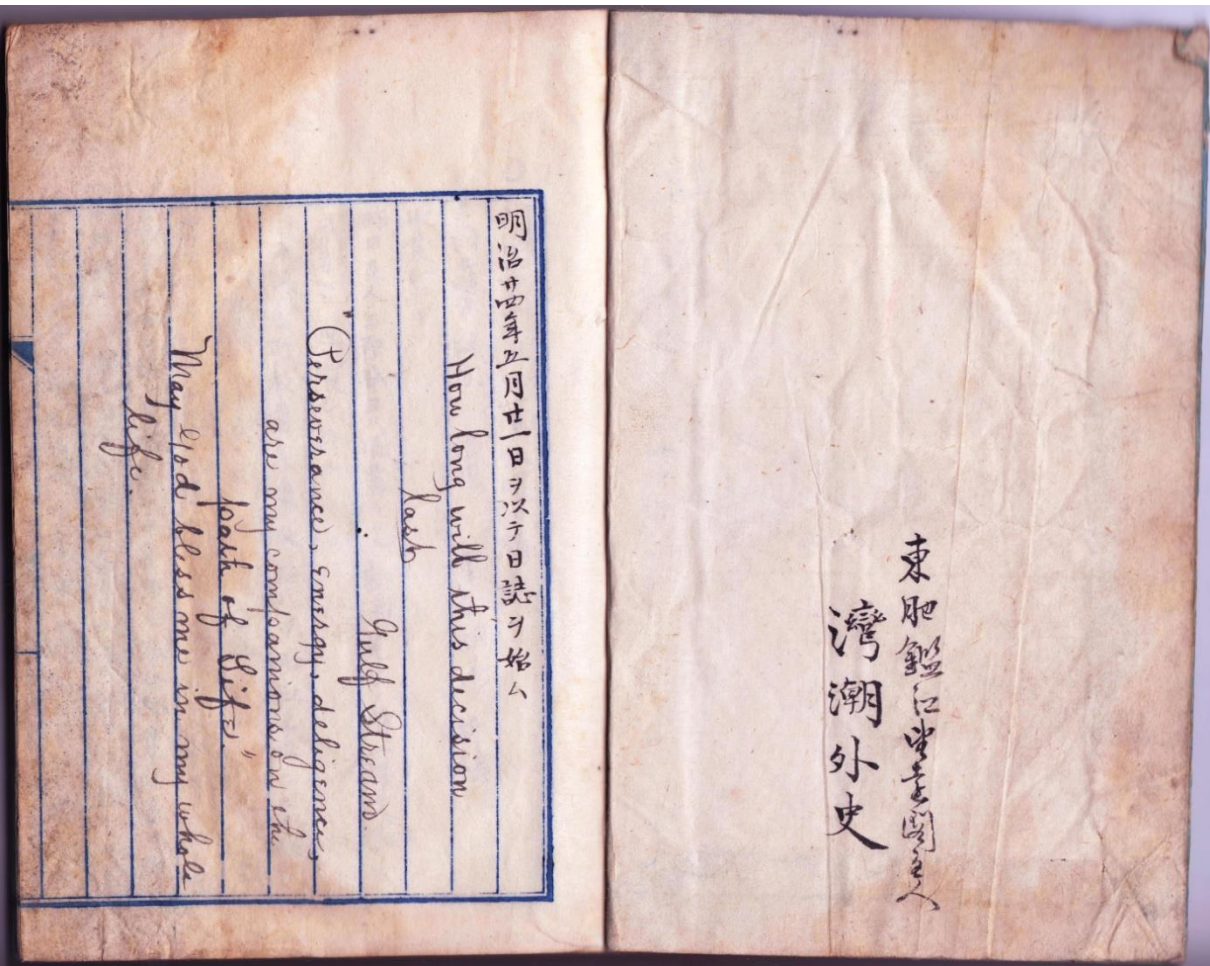 東肥鑑江
灣潮外史
明治廿四年五月廿一日ヲ以テ日誌ヲ始ム
How long will this decision
last
Gulf Stream.
"Perseverance, energy, deligence,
are my companions on the
path of Life"
May God bless me in my whole
life.